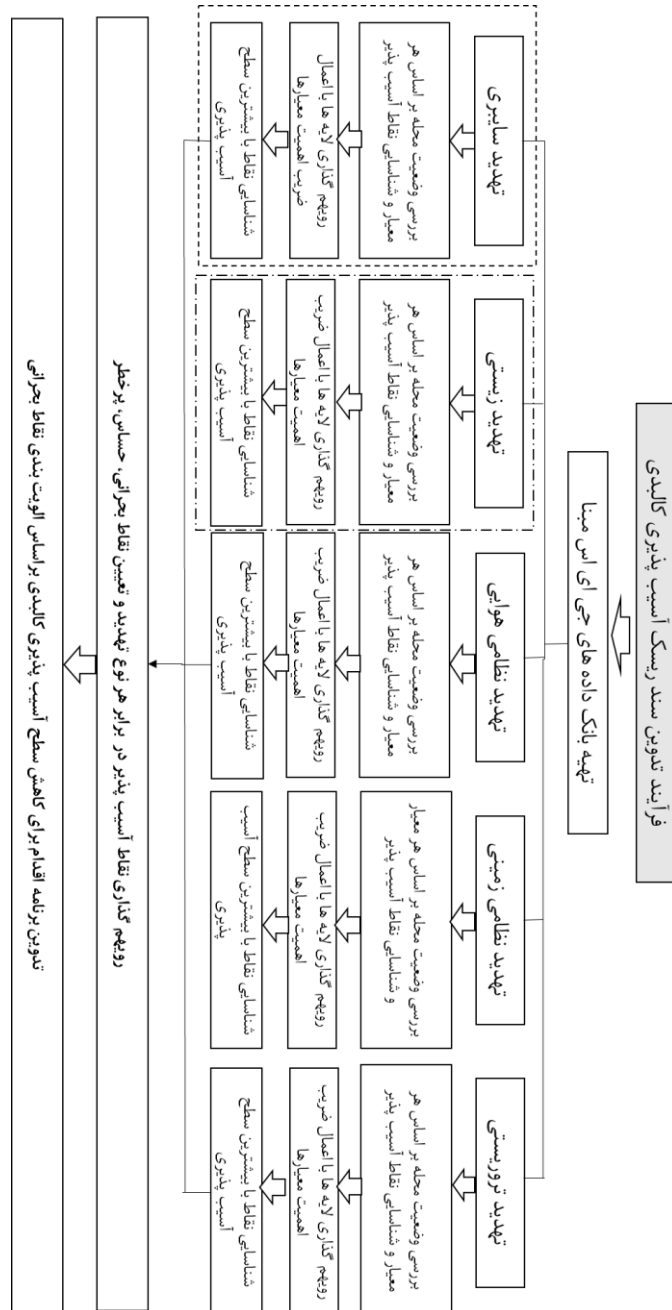 فرآیند تدوین سند ریسک آسیب پذیری کالبدی
تهیه بانک داده های جی ای اس مبنا
تهدید سایبری
بررسی وضعیت محله بر اساس هر
معیار و شناسایی نقاط آسیب پذیر
رویهم گذاری لایه ها با اعمال
ضریب اهمیت معیارها
شناسایی نقاط با بیشترین سطح
آسیب پذیری
تهدید زیستی
بررسی وضعیت محله بر اساس هر
معیار و شناسایی نقاط آسیب پذیر
رویهم گذاری لایه ها با اعمال ضریب
اهمیت معیارها
شناسایی نقاط با بیشترین سطح
آسیب پذیری
تهدید نظامی هوایی
بررسی وضعیت محله بر اساس هر
معیار و شناسایی نقاط آسیب پذیر
رویهم گذاری لایه ها با اعمال ضریب
اهمیت معیارها
شناسایی نقاط با بیشترین سطح
آسیب پذیری
تهدید نظامی زمینی
بررسی وضعیت محله بر اساس هر معیار
و شناسایی نقاط آسیب پذیر
رویهم گذاری لایه ها با اعمال ضریب
اهمیت معیارها
شناسایی نقاط با بیشترین سطح آسیب
پذیری
تهدید تروریستی
بررسی وضعیت محله بر اساس هر
معیار و شناسایی نقاط آسیب پذیر
رویهم گذاری لایه ها با اعمال ضریب
اهمیت معیارها
شناسایی نقاط با بیشترین سطح
آسیب پذیری
رویهم گذاری نقاط آسیب پذیر در برابر هر نوع تهدید و تعیین نقاط بحرانی، حساس، پرخطر
تدوین برنامه اقدام برای کاهش سطح آسیب پذیری کالبدی براساس الویت بندی نقاط بحرانی